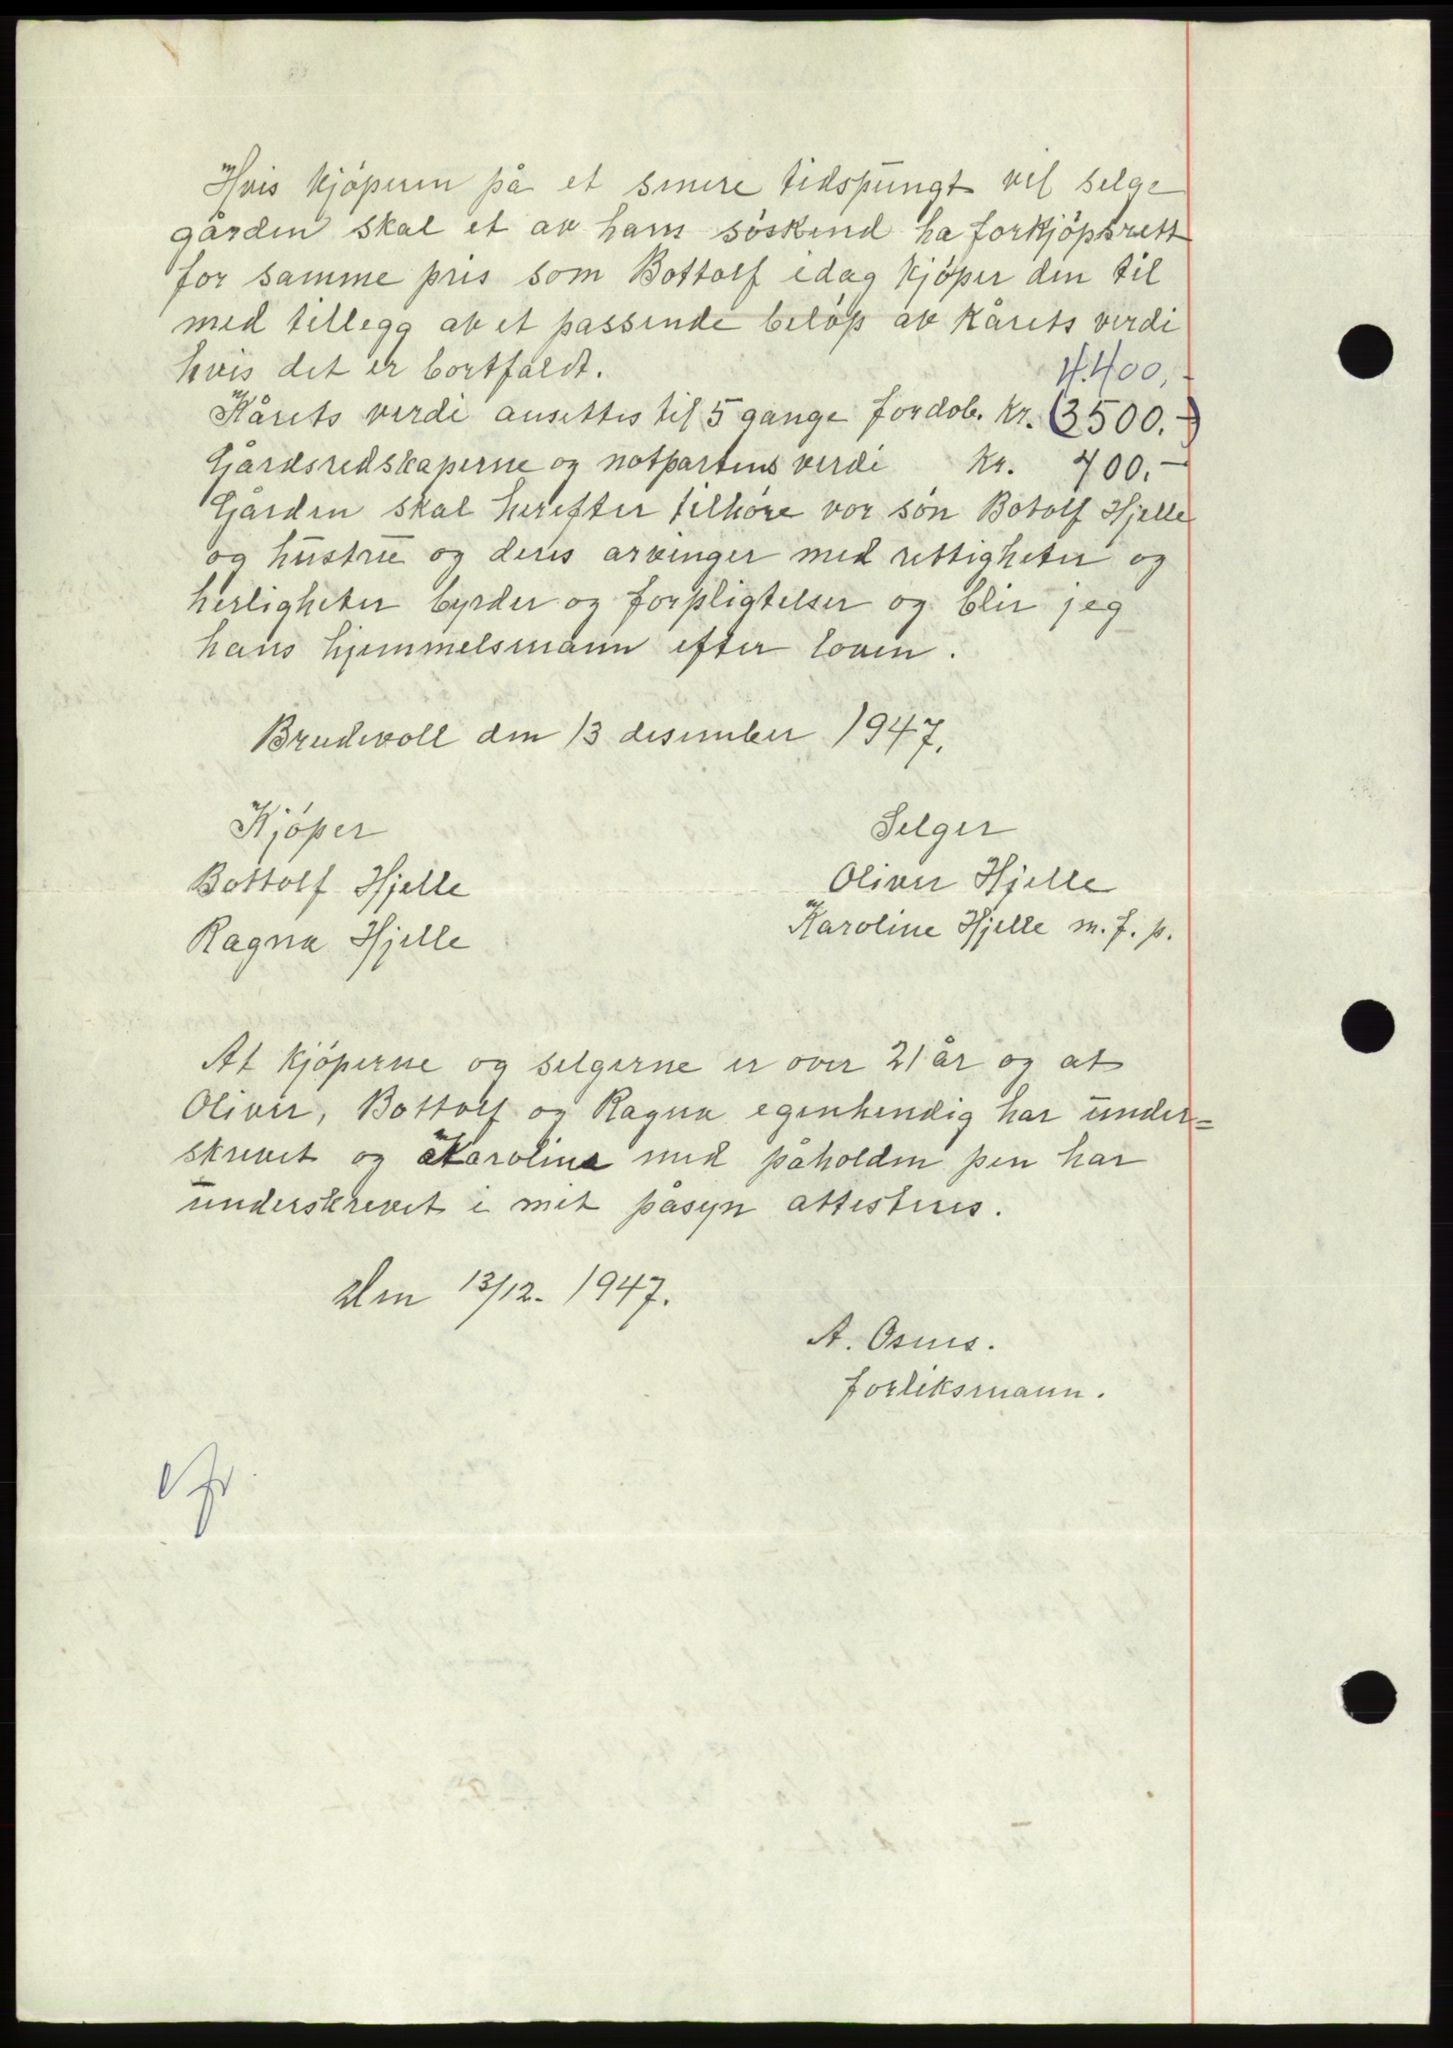 Hvis kjöperen på et senere tidspungt vil selge
gården skal et av hans söskend ha forkjöpsrett
for samme pris som Bottolf idag kjöper den til
med tillegg av et passende belöp av kårets verdi
hvis det er bortfaldt.
4.400,-
Kårets verdi ansettes til 5 gange fordob. kr. (3500.-)
Gårdsredskaperne og notpartens verdi kr. 700.-
Gården skal herefter tilhöre vor sön Botolf Hjelle
og hustru og deres arvinger med rettigheter og
herligheter byrder og forpligtelser og blir jeg
hans hjemmelsmann efter loven.
Brudevoll den 13 desember 1947.
Kjöper
Selger
Bottolf Hjelle
Oliver Hjelle
Ragna Hjelle
Karoline Hjelle m. f. p.
At kjöperne og selgerne er over 21 år og at
Oliver, Bottolf og Ragna egenhendig har under=
skrevet og Karoline med påholden pen har
underskrevet i mit påsyn attesteres.
Den 13/12. 1947.
A. Osnes.
forliksmann.